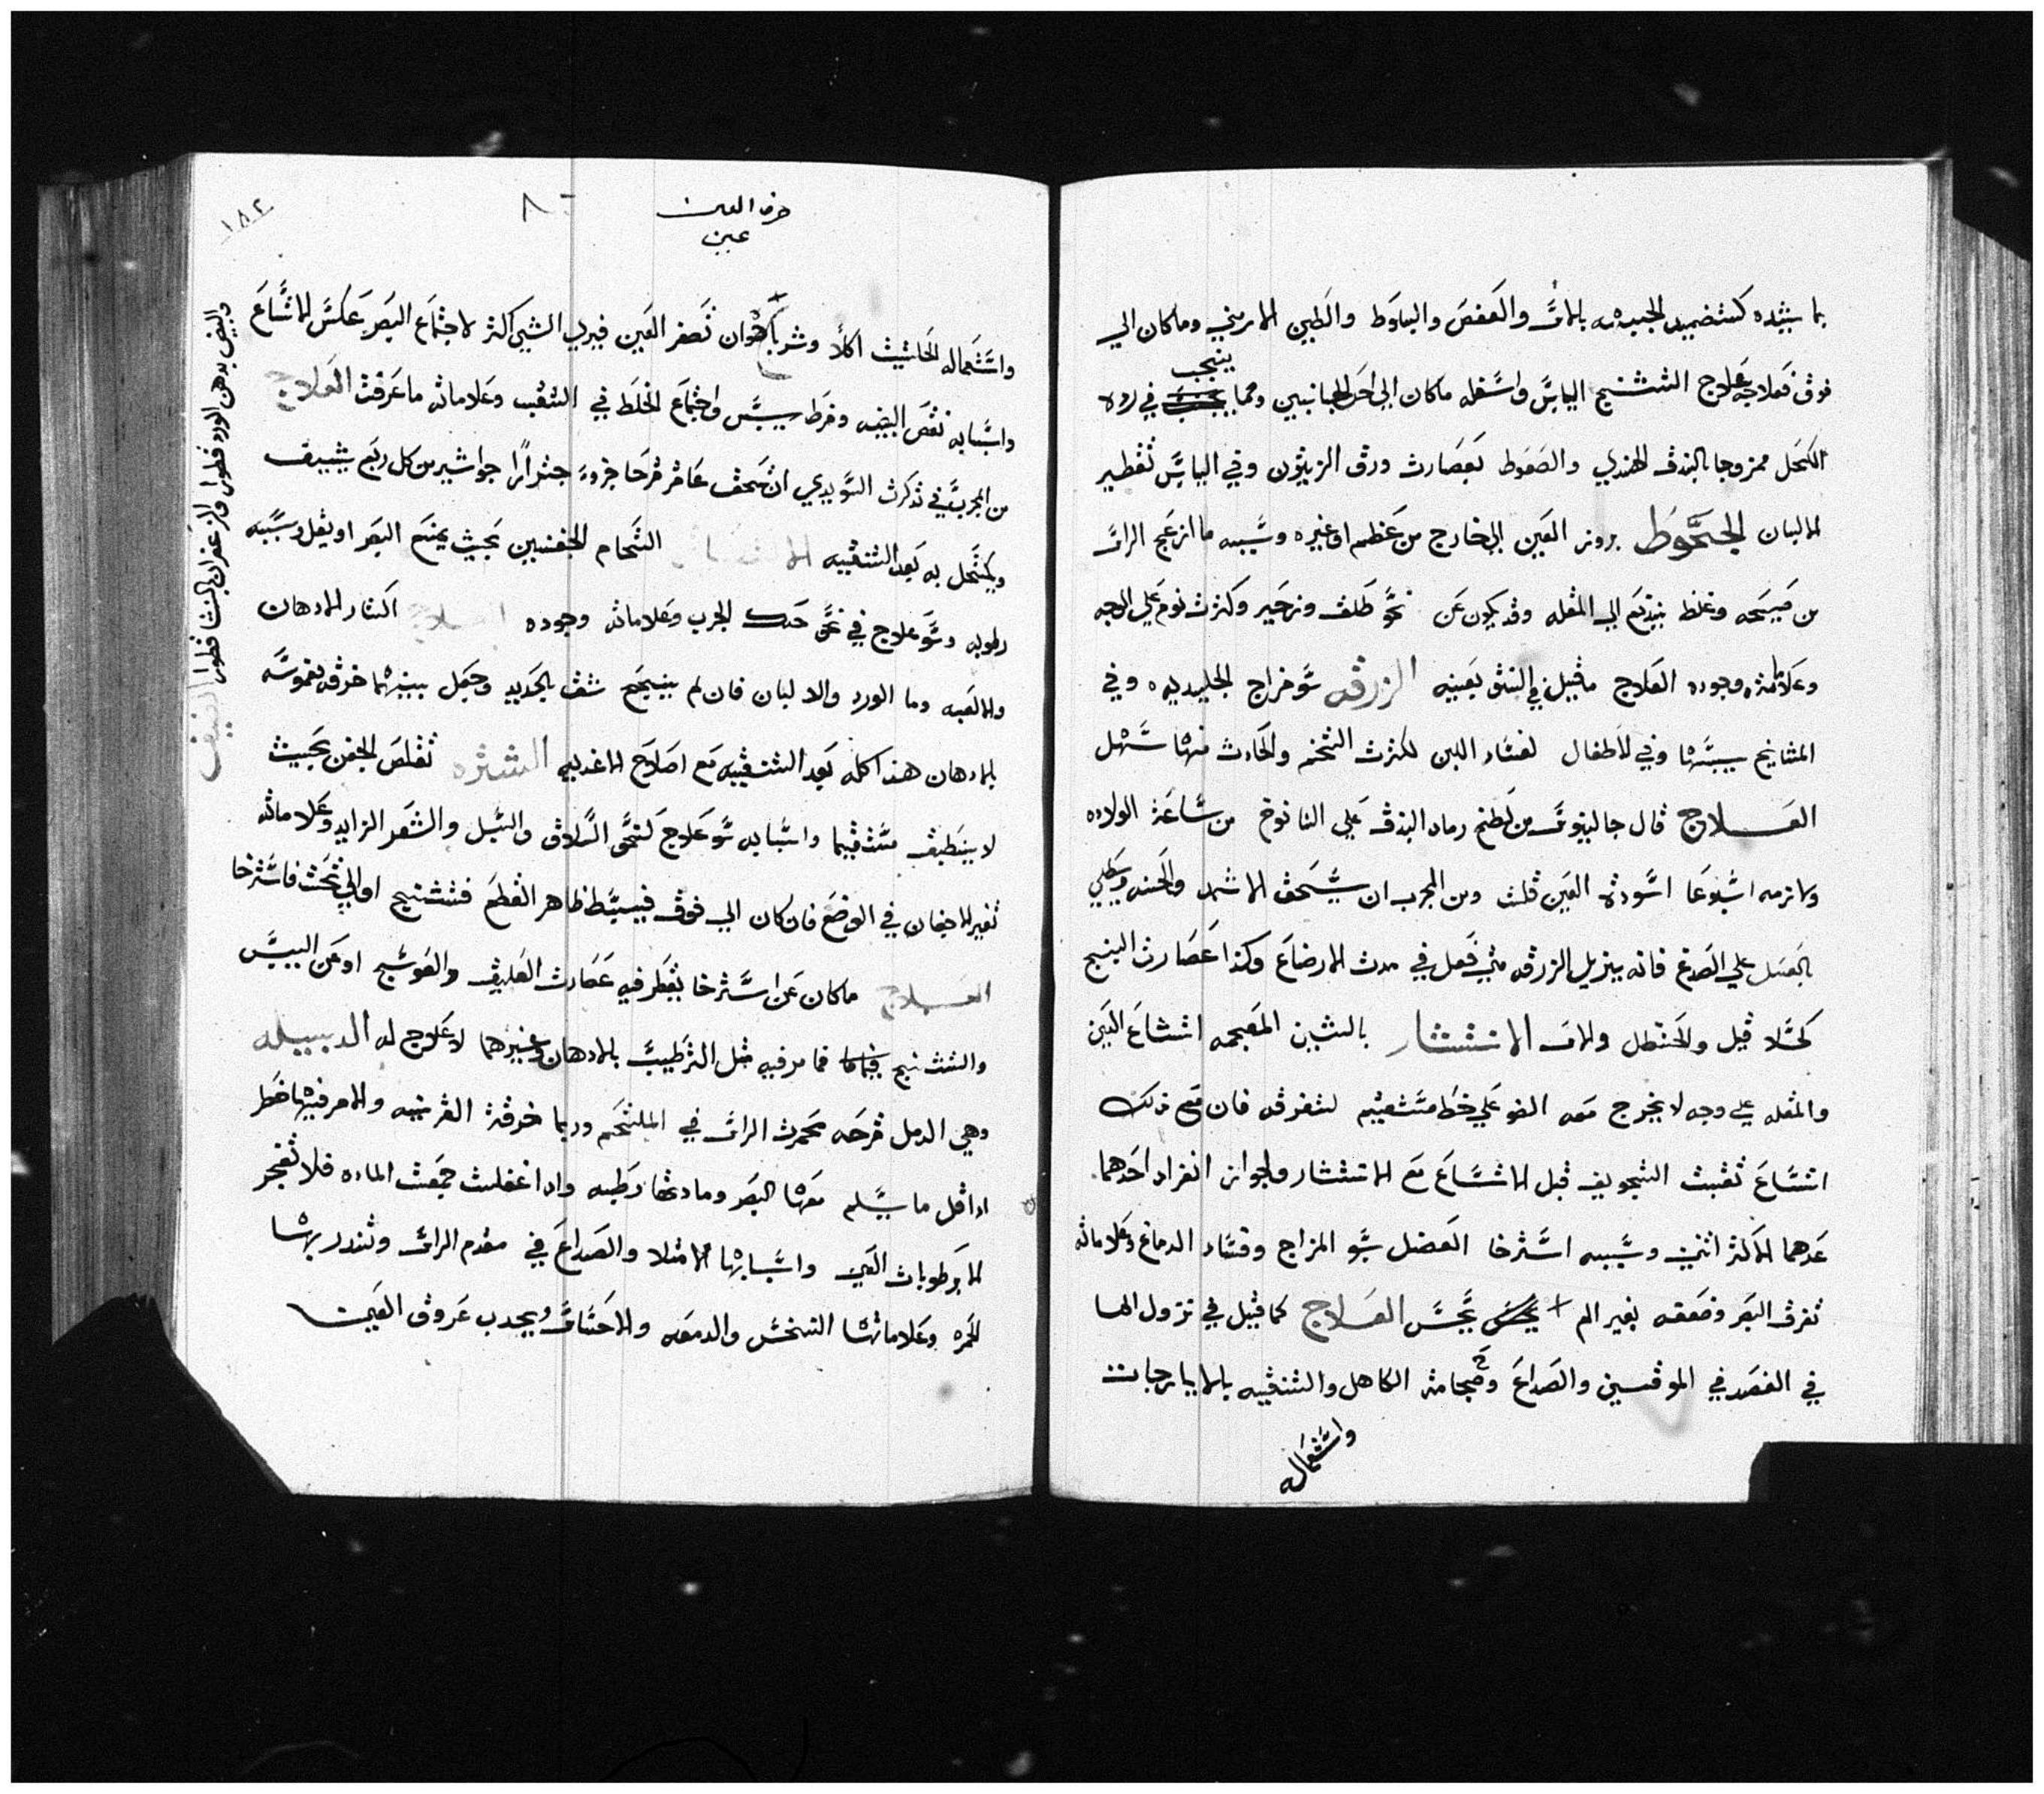 بما يشده كتضميد الجبهه بالاس والعفص والبلوط والطين الارمني وما كان الي
فوق فعلاجه علاج التشنج اليابس واسفله ما كان الى احد الجانبين ومما ينجب في رده
الكحل ممزوجا بالبندق الهندي والصعوط بعصارت ورق الزيتون وفي اليابس تقطير
الالبان الجحوظ بروز العين الي خارج من عظم او غيره وسببه ما ازعج الراس
من صيحه وغلظ يندفع الي المقله وقد يكون عن نحو طلق وزحير وكثرت نوم علي الوجه
وعلامته وجوده العلاج ما قيل في النتو بعينه الزرقه سو خراج الجليديه وفي
المشايخ يبسها وفي الاطفال لفساد اللبن لكثرت التخم والحادث منها سهل
العلاج قال جالينوس من لطخ رماد البندق علي اليافوخ من ساعة الولاده
ولازمه اسبوعا اسودت العين قلت ومن المجرب ان يسحق الاثمد والحسد ويطلي
بالعسل علي الصدغ فانه يزيل الزرقه متي فعل في مدت الارضاع وكذا عصارت البنج
كحلا قيل والحنظل والاس الانتشار بالشين المعجمه اتساع العين
والمقله علي وجه لا يخرج معه الضو علي خط مستقيم لتفرقه فان مع ذلك
اتساع ثقبت التجويف قبل الاتساع مع الانتشار ولجواز انفراد احدهما
عدهما الاكثر اثنين وسببه استرخا العضل بسو المزاج وفساد الدماغ وعلاماته
تفرق البصر وضعفه بغير الم يحس العلاج كما قيل في نزول الما
في الفصد في الموقين والصداغ وحجامة الكاهل والتنقيه بالايارجات
واستعماله
حرف العين
عين
١٨٢
واستعماله الحلتيت اكلا وشربا هوان تصغر العين فيري الشيي اكثر لاجتماع البصر عكس الاتساع
واسبابه نقص البيضه وفرط يبس واجتماع الخلط في الثقب وعلاماته ما عرفت العلاج
من المجرب في تذكرت السويدي ان يسحق عاقر قرحا جزوء جندارا جواشير من كل ربع يشيف
ويكتحل به بعد التنقيه التحام الجفنين بحيث يمنع البصر او يقل وسببه
رطوبه وسو علاج في نحو حك الجرب وعلاماته وجوده العلاج اكثار الادهان
والالعبه وما الورد والالبان فان لم ينجع شق بالحديد وجعل بينهما خرقه مغموسه
بالادهان هذا كله بعد التنقيه مع اصلاح الاغديه الشتره تقلص الجفن بحيث
لا ينطبق مستقيما واسبابه سو علاج لنحو السلاق والسبل والشعر الزايد وعلاماته
تغير الاجفان في الوضع فان كان الي فوق فيبسط ظاهر القطع فتشنج او الي تحت فاسترخا
العلاج ما كان عن استرخا يقطر فيه عصارت العليق والعوسج او عن اليبس
والتشنج فما مر فيه مثل الترطيب بالادهان وغيرهما لا علاج له الدبيله
وهي الدمل قرحه محمرت الراس في الملتحم وربما خرقت القرنيه والامر فيها خطر
اد اقل ما يسلم معها البصر ومادتها رطبه وادا غفلت جمعت الماده فلا تفجر
الا برطوبات العين واسبابها الامتلا والصداع في مقدم الراس وتندر بها
الحمره وعلاماتها النخس والدمعه والاحتباس ويجدب عروق العين
والبيض بدهن الورد قطورا والزعفران بالنشا قطورا